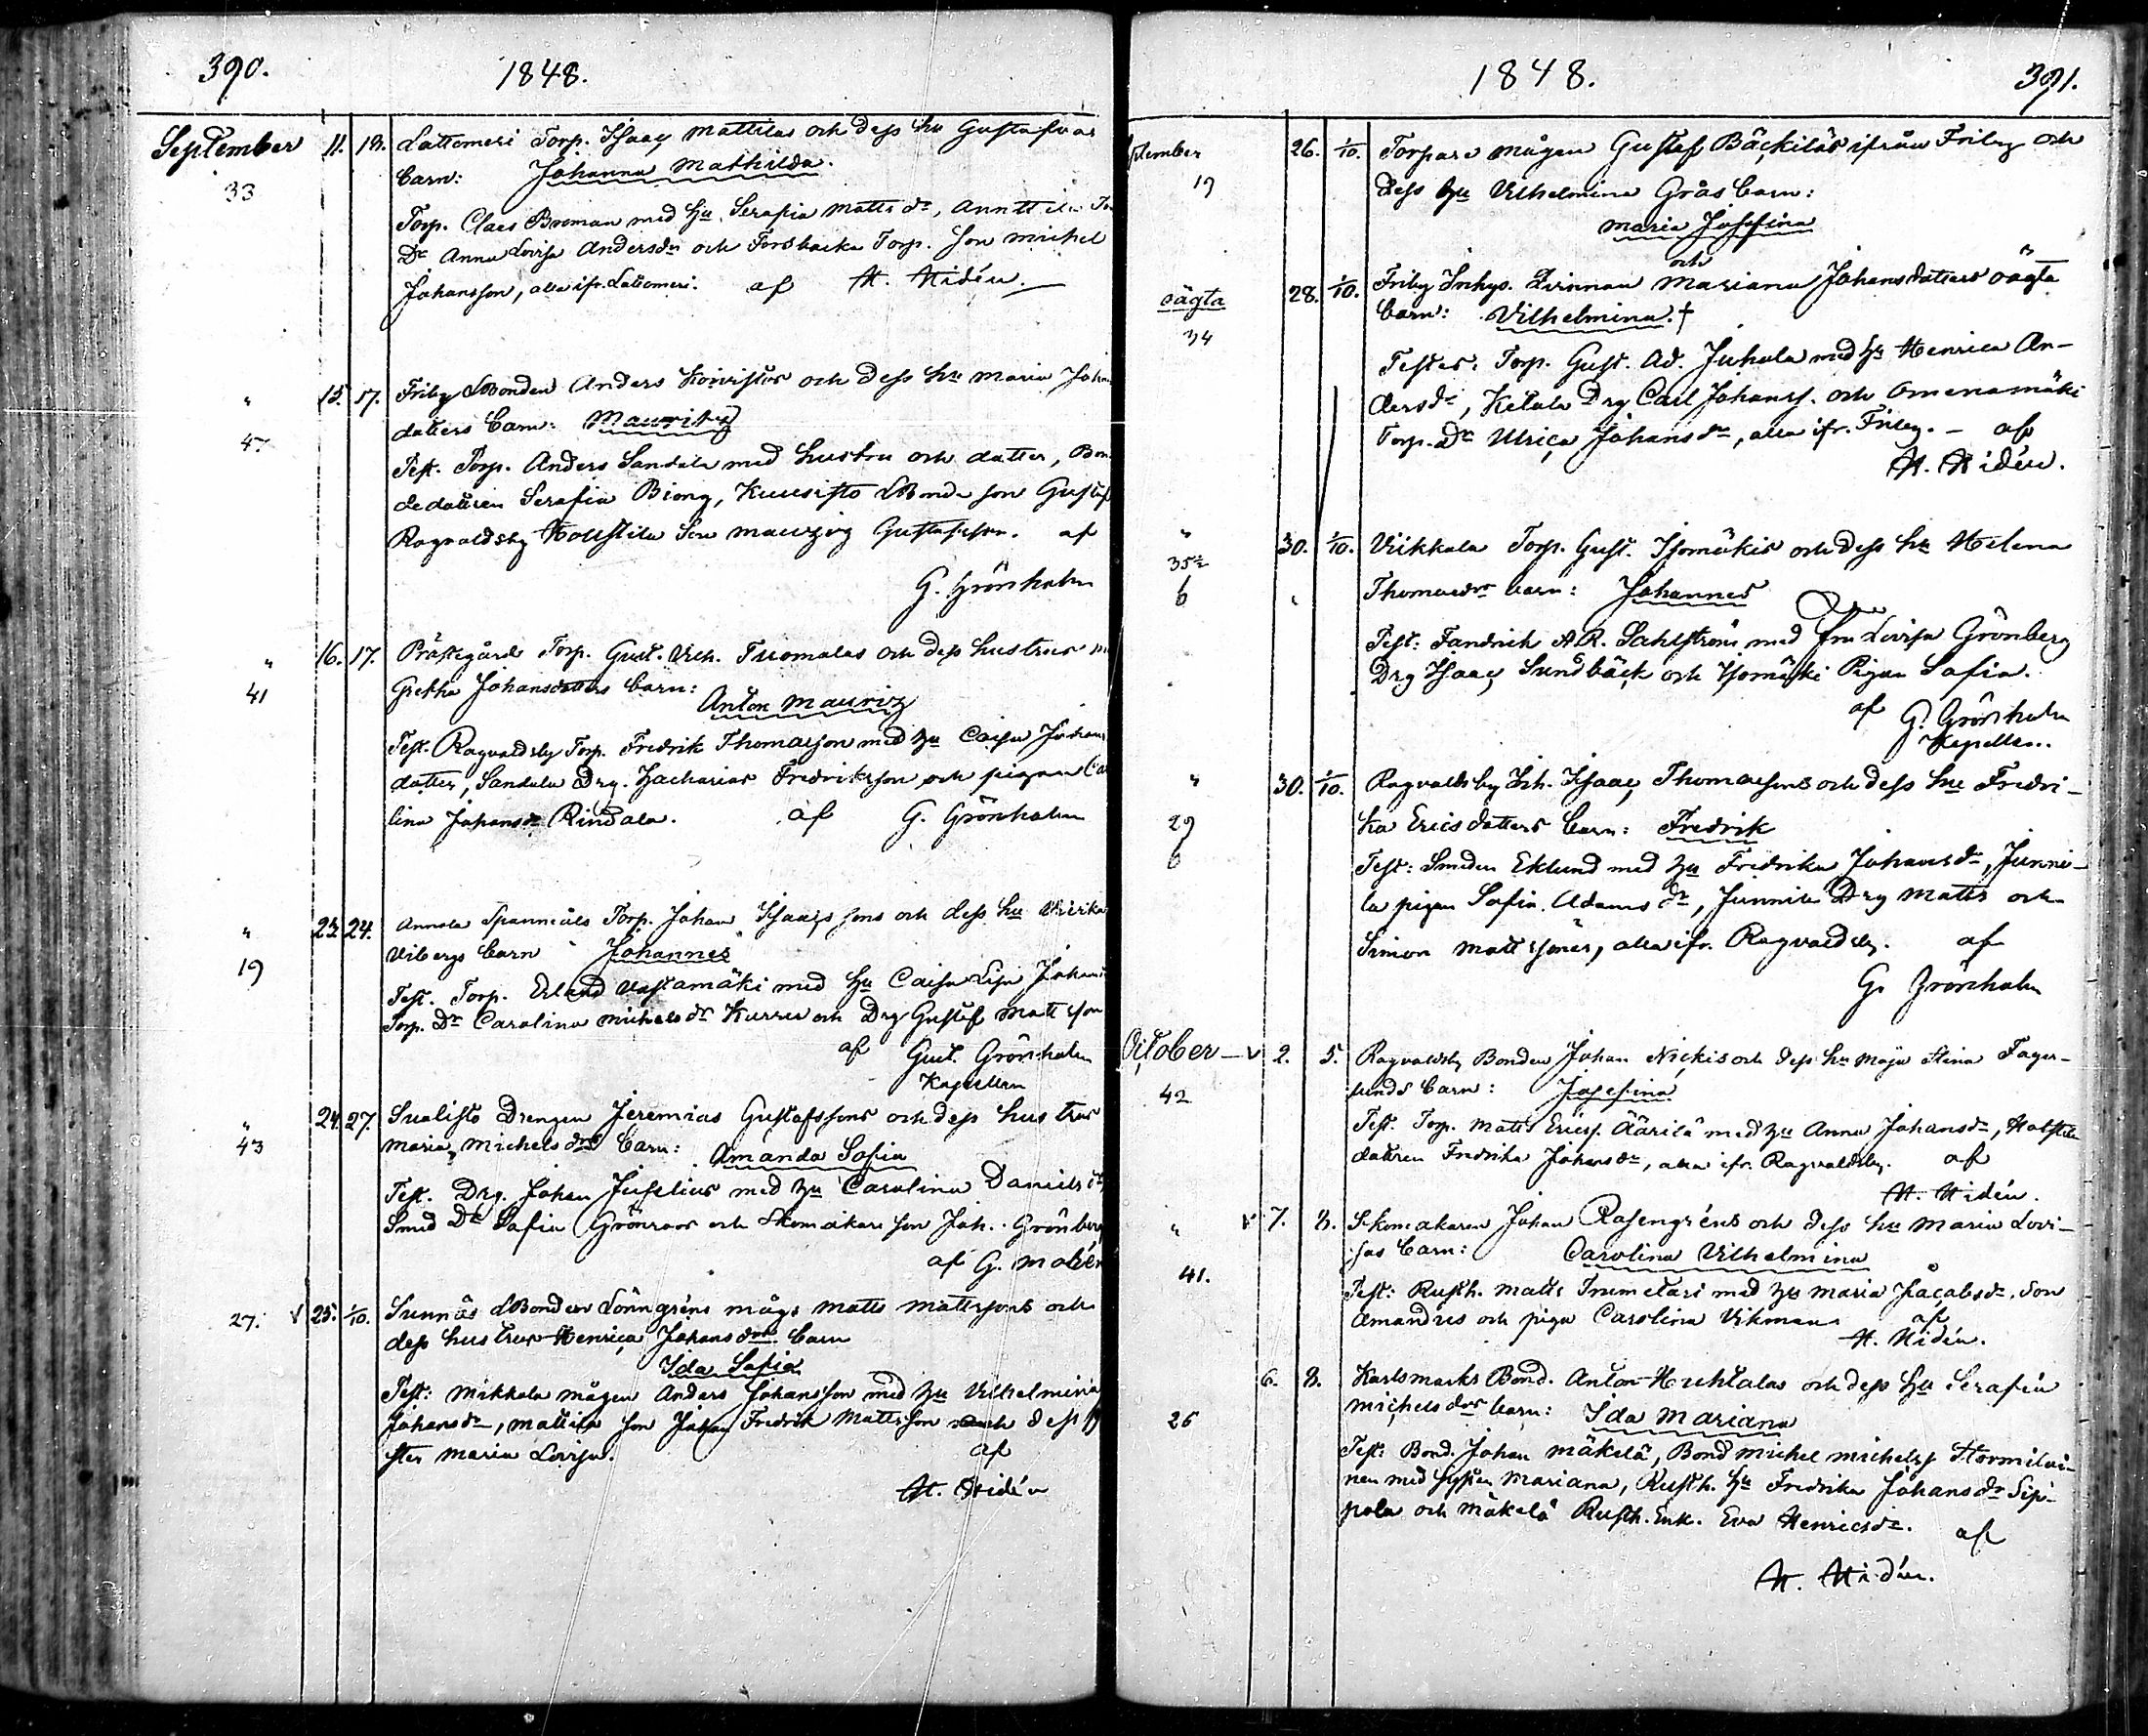 390. 1848.
September 11. 18. Lattomeri Torp. Isaac Mattilas och dess hu Gustafvas
33 barn: Johanna Mathilda.
Torp. Claes Broman med hu Serafia Matts dr, Annttila
Dr Anna Lovisa Andersdr och Forsbacka Torp. Son Michel
Johansson, alla ifr. Lattomeri. af N. Nidén.
" 15. 17. Friby LBonden Anders Koivistos och dess hu Maria
47. datters barn: Mauritz
Test. Torp. Anders Sandala med hustru och datter, Bon
dedattren Serafia Biong, Kuusisto LBonde son Gustaf
Ragvaldsby Son Gustafsson. af
G. Grönholm
" 16. 17. Prästegårds Torp. Gust. Vilh. Tuomolas och dess hustrus
41 Gretha Johansdatters barn: Anton Mauritz
Test. Ragvaldsby Torp. Fredrik Thomasson med hu Caisa
datter, Sandala Drg. Zacharias Fredriksson och pigan
lina Johansdr Rindala. af G. Grönholm
" 23. 24. Annola Torp. Johan Isaacssons och dess hu Ulrika
19 Vibergs barn Johannes
Test. Torp. Erland Vastamäki med hu Caisa Lisa
Torp. Dr Carolina Michelsdr Kurru och Drg Gustaf Mattsson
af Gust. Grönholm
Kapellan
" 24. 27. Sualisto Drengen Jeremias Gustafssons och dess hustrus
43 Maria Michelsdrs barn: Amanda Sofia
Test. Drg. Johan Juselius med hu Carolina Daniels
Smed Dr Safia Grönroos och Skomakare son Joh. Grönberg
af G. Molin
27. v 25. 1/10. Sunnäs LBonden Lönngréns mågs Matts Mattssons och
dess hustrus Henrica Johansdrs barn
Ida Safia
Test: Mikkola mågen Anders Johansson med hu Vilhelmina
Johansdr, Mattila son Johan Fredrik Mattsson och dess
ster Maria Lovisa. af
N. Nidén
1848. 391.
ptember 26. 1/10. Torpare mågen Gustaf Bäckiläs ifrån Friby och
19 dess hu Vilhelmina Grås barn:
Maria Josefina
och
oägta 28. 1/10. Friby Inhys. Qvinnan Mariana Johansdatters oägta
34 barn: Vilhelmina. †
Testes: Torp. Gust. Ad. Juhola med hu Henrica An-
dersdr, Ketala Drg Carl Johanss. och Omenamäki
Torp. dr Ulrica Johansdr, alla ifr. Friby. – af
N. Nidén.
" 30. 1/10. Viikkala Torp. Gust. Isomäkis och dess hu Helena
35 1/2 Thomasdrs barn: Johannes
6 Test: Fandrich A.R. Sahlström med fru Lovisa Grönberg
Drg Isaac Sundbäck och Isomäki Pigan Safia.
af G. Grönholm
Kapellan.
" 30. 1/10. Ragvaldsby Inh. Isaac Thomassons och dess hu Fredri-
29 ka Ericsdatters barn: Fredrik
6 Test: Smeden Eklund med hu Fredrika Johansdr, Junni-
la pigan Safia Adamsdr, Junnila Drg Matts och
Simon Mattssöner, alla ifr. Ragvaldsby. af
G. Grönholm
October – v 2. 5. Ragvaldsby Bonden Johan Nickis och dess hu Maja Stina Fager-
42 lunds barn: Josefina
Test. Torp. Matts Ericss. Äärilä med hu Anna Johansdr,
dattren Fredrika Johansdr, alla ifr. Ragvaldsby. af
N. Nidén.
" v 7. 8. Skomakaren Johan Rosengréns och dess hu Maria Lovi-
sas barn: Carolina Vilhelmina
41. Test: Rusth. Matts Trumetari med hu Maria Jacobsdr, Son
Amandus och piga Carolina Vikman af
N. Nidén.
6. 8. Karlsmarks Bond. Anton Huhtalas och dess hu Serafia
26 Michelsdrs barn: Ida Mariana
Test: Bond. Johan Mäkelä, Bond Michel Michelss
nen med Mariana, Rusth. hu Fredrika Johansdr Sip-
pola och Mäkelä Rusth. Enk. Eva Henricsdr. af
N. Nidén.